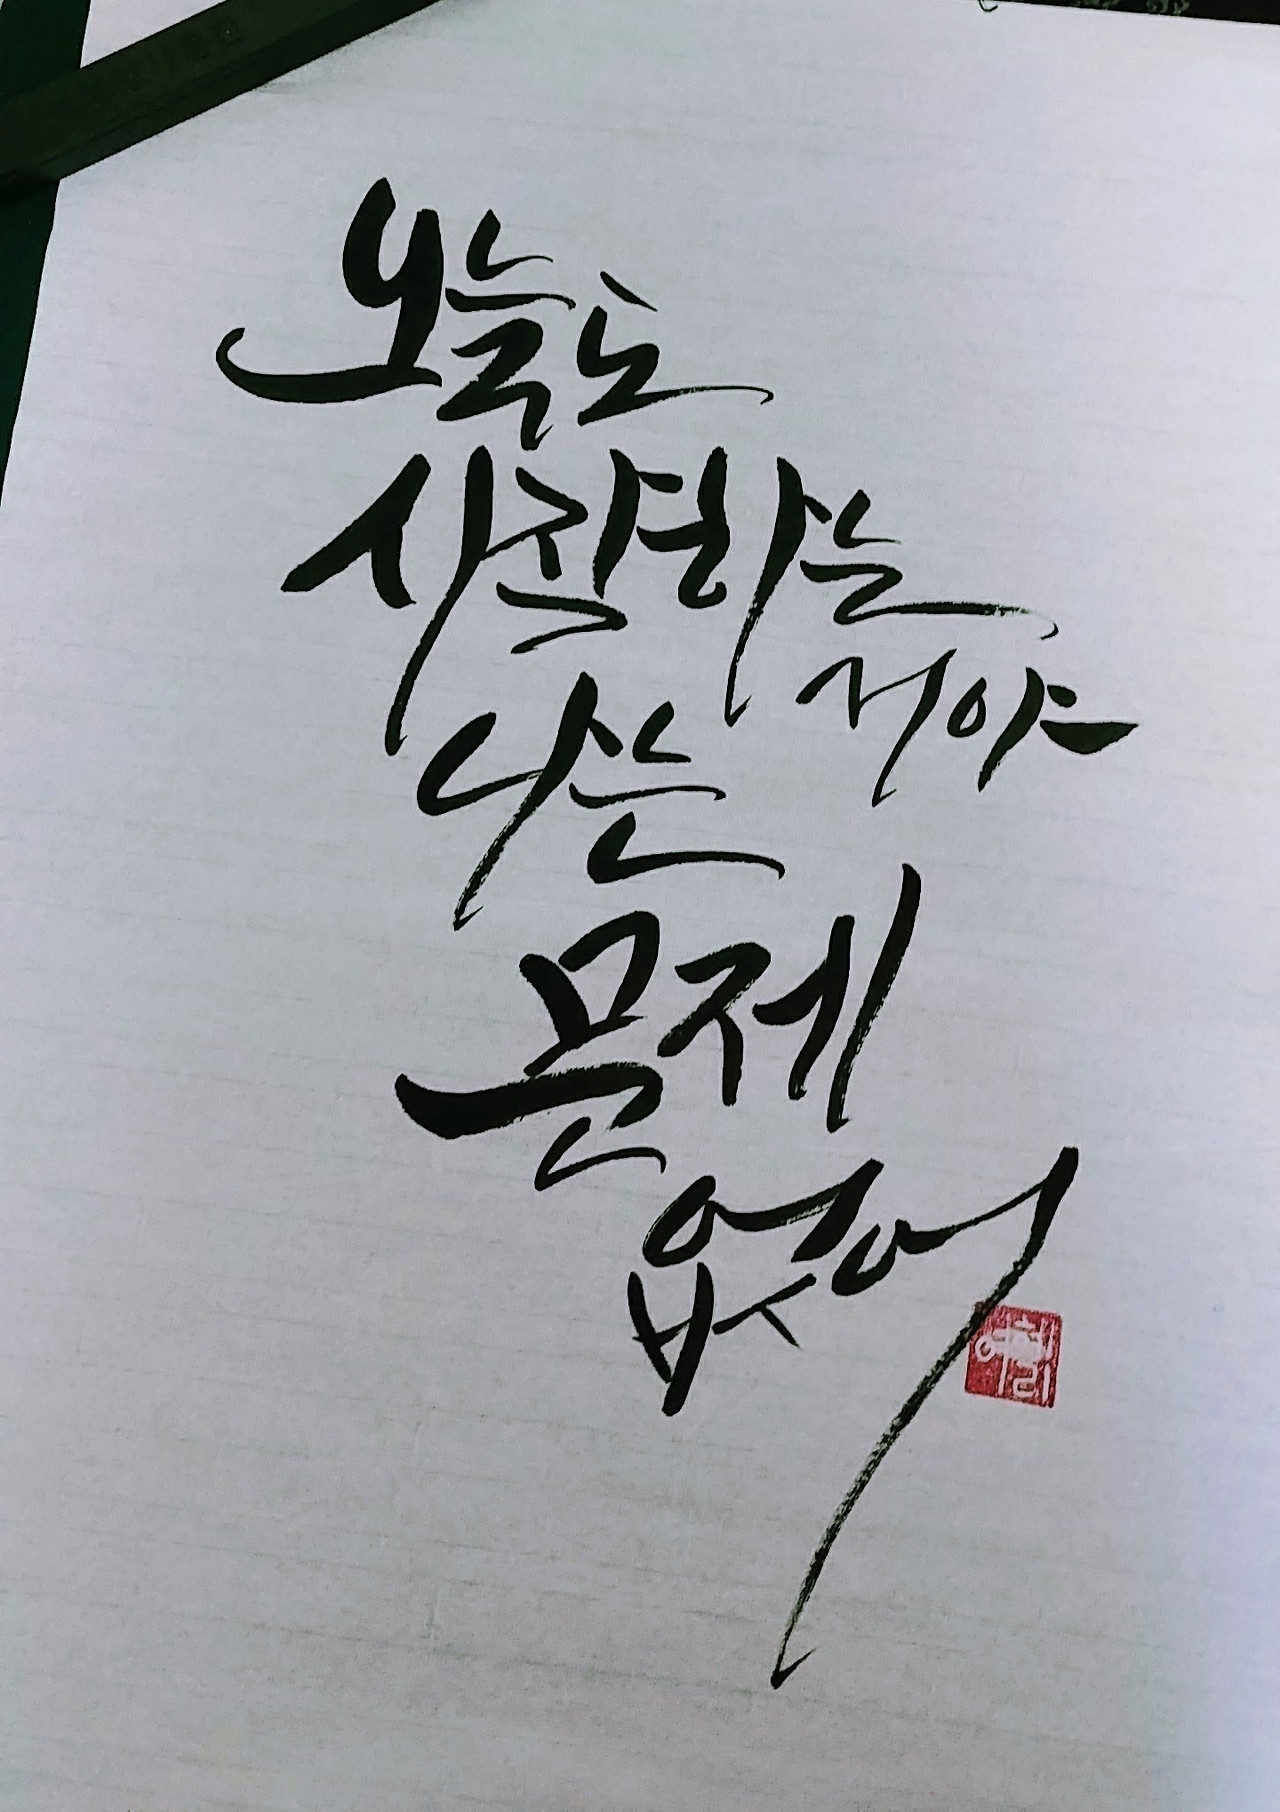 오늘도
시작하는
거야
나는
문제
없어